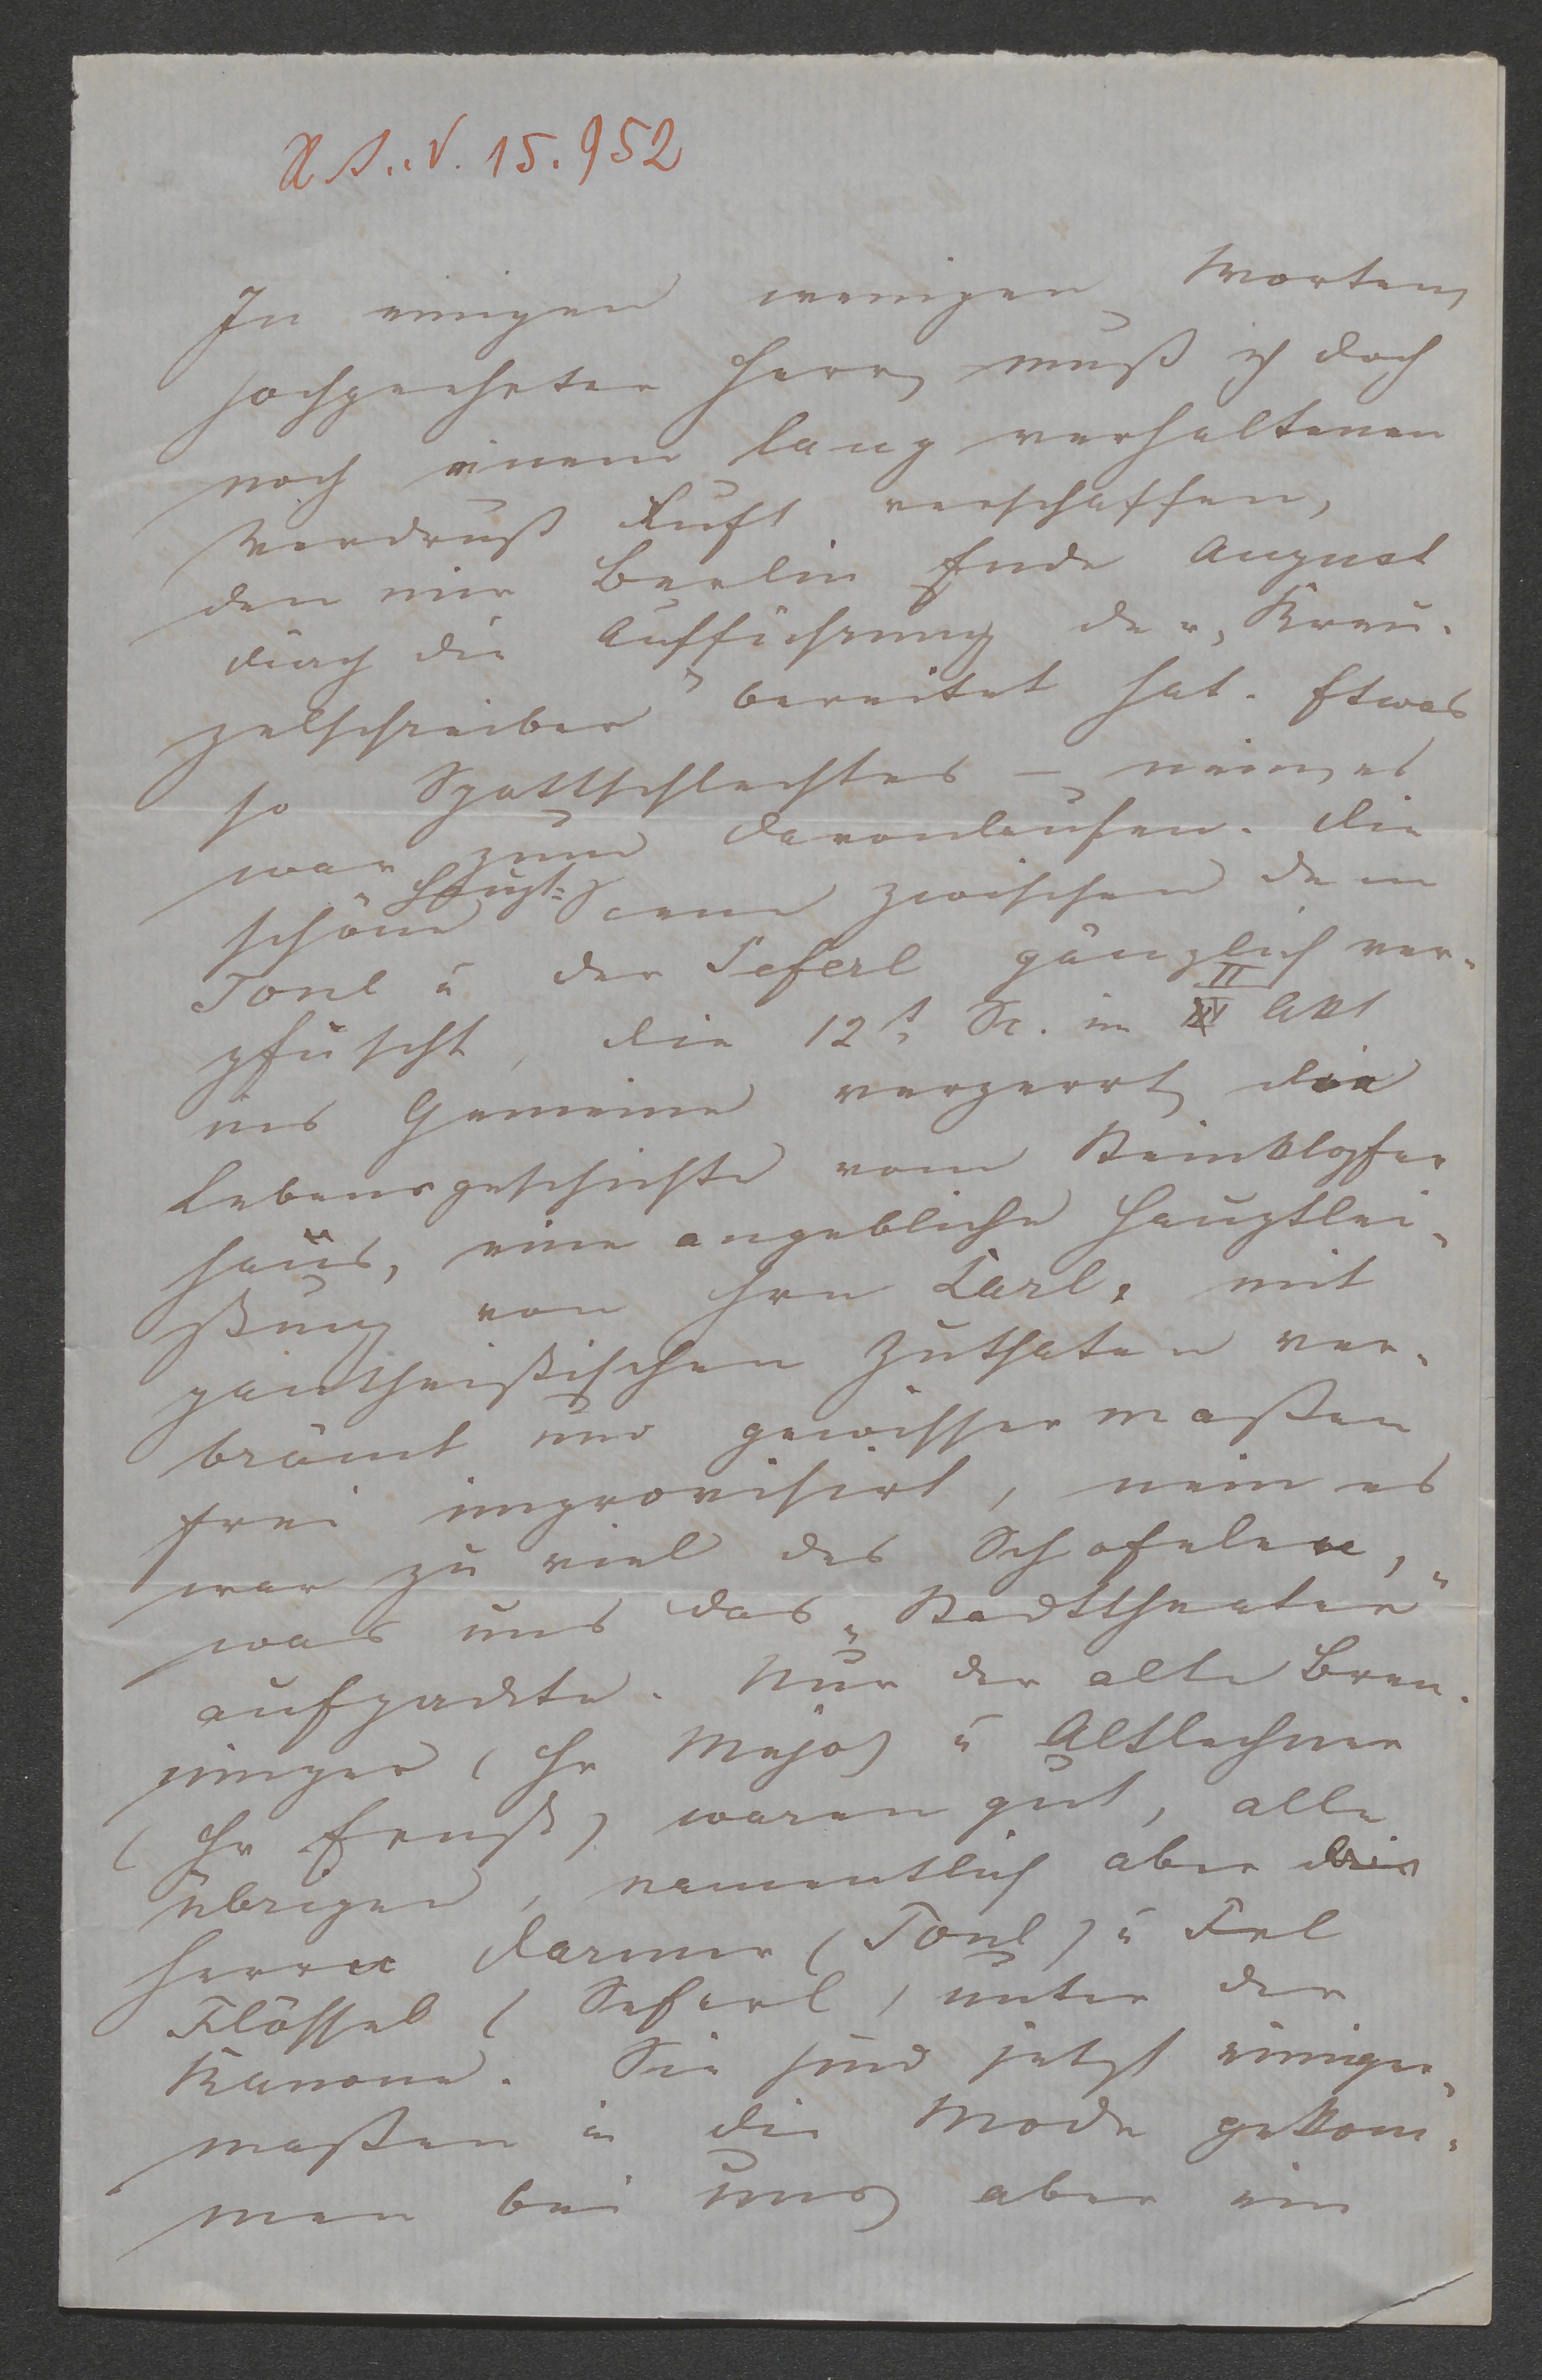 15.952
In einigen wenigen Worten,
hochgeehrter Herr, muß ich doch
noch einem lang verhaltenen
Verdruß Luft verschaffen,
den mir Berlin Ende August
durch die Aufführung der „Kreu-
zelschreiber“ bereitet hat. Etwas
so Spottschlechtes – nein, es
war zum Davonlaufen. Die
schöne Haupt=Scene zwischen dem
Tonl u der Seferl gänzlich ver-
pfuscht, die 12t Sc. im II Akt
ins Gemeine verzerrt, die
Lebensgeschichte vom Steinklopfer
hans, eine angebliche Hauptlei-
stung von Hrn Carl, mit
pantheistischen Zuthaten ver-
brämt und gewissermaßen
frei improvisirt, nein es
war zu viel des Schofelen,
was uns das „Stadttheater“
aufpackte. Nur der alte Bren-
ninger (Hr Mejo) u Altlechner
(Hr Ernst) waren gut, alle
übrigen, namentlich aber die
Herrn Darmer (Tonl) u Frl
Flössel (Seferl) unter der
Kanone. Sie sind jetzt einiger-
maßen in die Mode gekom-
men bei uns, aber ein